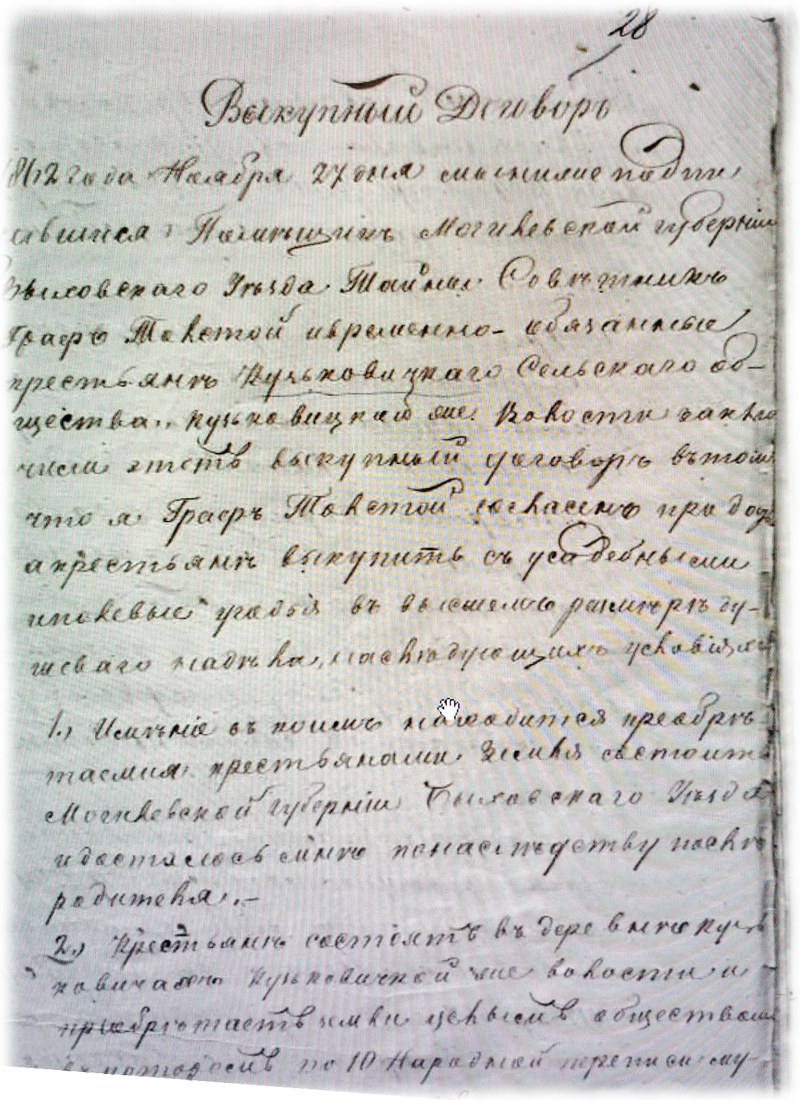 28
Выкупный Договоръ
1862 года Ноября 27 дня мы нижеподпи
савшися Помѣщикъ Могилевской губерніи
Быховскаго Уѣзда Тайный Совѣтникъ
Графъ Толстой и временно-обязанные
крестьянѣ Кузьковицкаго Сельскаго об-
щества, Кузьковицкой же Волости заклю
чили этотъ выкупный договоръ въ томъ
что я Графъ Толстой согласенъ продать
а крестьянѣ выкупить съ усадебными
и полевые угодья въ высшемъ размѣрѣ ду-
шеваго надѣла, на слѣдующихъ условіяхъ
1.) Имѣніе въ коимъ находится преобрѣ
таемая крестьянами Земля состоитъ
Могилевской губерніи Быховскаго Уѣзда
и досталось мнѣ по наслѣдству послѣ
родителя.-
2.) Крестьянѣ состоятъ въ деревнѣ Кузь
ковичахъ Кузьковичкой же волости и
приобрѣтаютъ земли цѣлымъ обществомъ
въ которомъ по 10 Народной переписи му-